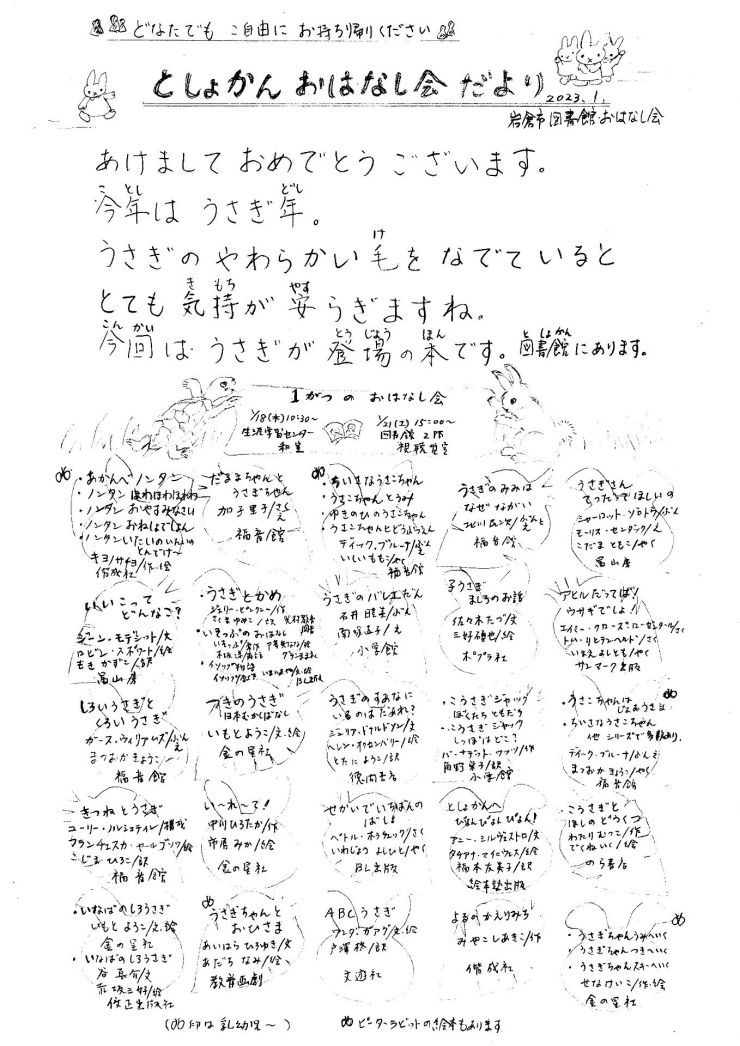 どなたでも ご自由に お持ち帰りください
としょかん おはなし会 だより
2023.1.
岩倉市図書館おはなし会
あけまして おめでとう ございます。
今年は うさぎ年。
ことし どし
うさぎの やわらかい 毛を なでていると
け
とても 気持が 安らぎますね。
き もち やす
今回は うさぎが 登場の本です。図書館にあります。
こん かい とうじょう ほん としょかん
1がつの おはなし会
1/18(水)10:30〜
生涯学習センター
和室
1/21(土)15:00〜
図書館 2階
視聴覚室
・あかんべノンタン
・ノンタン ほわほわほわわ
・ノンタン おやすみなさい
・ノンタン おねしょでしょん
・ノンタン いたいのいたいの
とんでけ〜
キヨノサチコ/作・絵
偕成社
だるまちゃんと
うさぎちゃん
加古里子/さく え
福音館
・ちいさなうさこちゃん
・うさこちゃんとうみ
・ゆきのひのうさこちゃん
・うさこちゃんとどうぶつえん
ディック・ブルーナ/ぶん え
いしいももこ/やく
福音館
うさぎのみみは
なぜながい
北川民次/ぶんとえ
福音館
うさぎさん
てつだってほしいの
シャーロット・ゾロトウ/ぶん
モーリス・センダック/え
こだま ともこ/やく
冨山房
いいこって
どんなこ?
ジーン・モデシット/文
ロビン・スポワート/絵
もき かずこ/訳
冨山房
・うさぎとかめ
ジェリー・ピンクニー/作
さくま ゆみこ/訳 光村教育図書
・いそっぷのおはなし
グランまま社
・イソップ物語
BL出版
うさぎのバレエだん
石井睦美/ぶん
南塚直子/え
小学館
子うさぎ
ましろのお話
佐々木たづ/文
三好碩也/絵
ポプラ社
アヒルだってば!
ウサギでしょ!
エイミー・クローズ・ローゼンタール/さく
トム・リヒテンヘルド/さく
いまえ よしとも/やく
サンマーク出版
しろいうさぎと
くろいうさぎ
ガース・ウィリアムズ/ぶん え
まつおかきょうこ/やく
福音館
つきのうさぎ
日本むかしばなし
いもとようこ/文・絵
金の星社
うさぎのすあなに
いるのはだあれ?
ジュリア・ドナルドソン/文
ヘレン・オクセンバリー/絵
とたに ようこ/訳
徳間書店
・こうさぎジャック
ぼくたち ともだち
・こうさぎジャック
しっぽはどこ?
バーナデット・ワッツ/作
角野栄子/訳
小学館
・うさこちゃんは
じょおうさま
・ちいさなうさこちゃん
他 シリーズで多数あり。
ディック・ブルーナ/ぶん え
まつおか きょうこ/やく
福音館
きつねとうさぎ
ユーリー・ノルシュテイン/構成
フランチェスカ・ヤールブソワ/絵
こじま ひろこ/訳
福音館
い〜れ〜て!
中川ひろたか/作
市居みか/絵
金の星社
せかいでいちばんの
ばしょ
ペトル・ホラチェック/さく
いわじょう よしひと/やく
BL出版
としょかんへ
ぴょんぴょんぴょん!
アニー・シルヴェストロ/文
タチアナ・マイニッキス/絵
福本友美子/訳
絵本塾出版
こうさぎと
ほしのどうくつ
わたり むつこ/作
でくね いく/絵
のら書店
・いなばのしろうさぎ
いもと ようこ/文・絵
金の星社
・いなばのしろうさぎ
谷真介/文
赤坂三好/絵
佼正出版社
うさぎちゃんと
おひさま
あいはら ひろゆき/文
あだち なみ/絵
教育画劇
ABCうさぎ
ワンダ・ガアグ/文・絵
戸澤柊/訳
文遊社
よるのかえりみち
みやこしあきこ/作
偕成社
・うさぎちゃん うみへいく
・うさぎちゃん つきへいく
・うさぎちゃん スキーへいく
せなけいこ/作・絵
金の星社
(の印は乳幼児〜)
ピーターラビットの絵本もあります